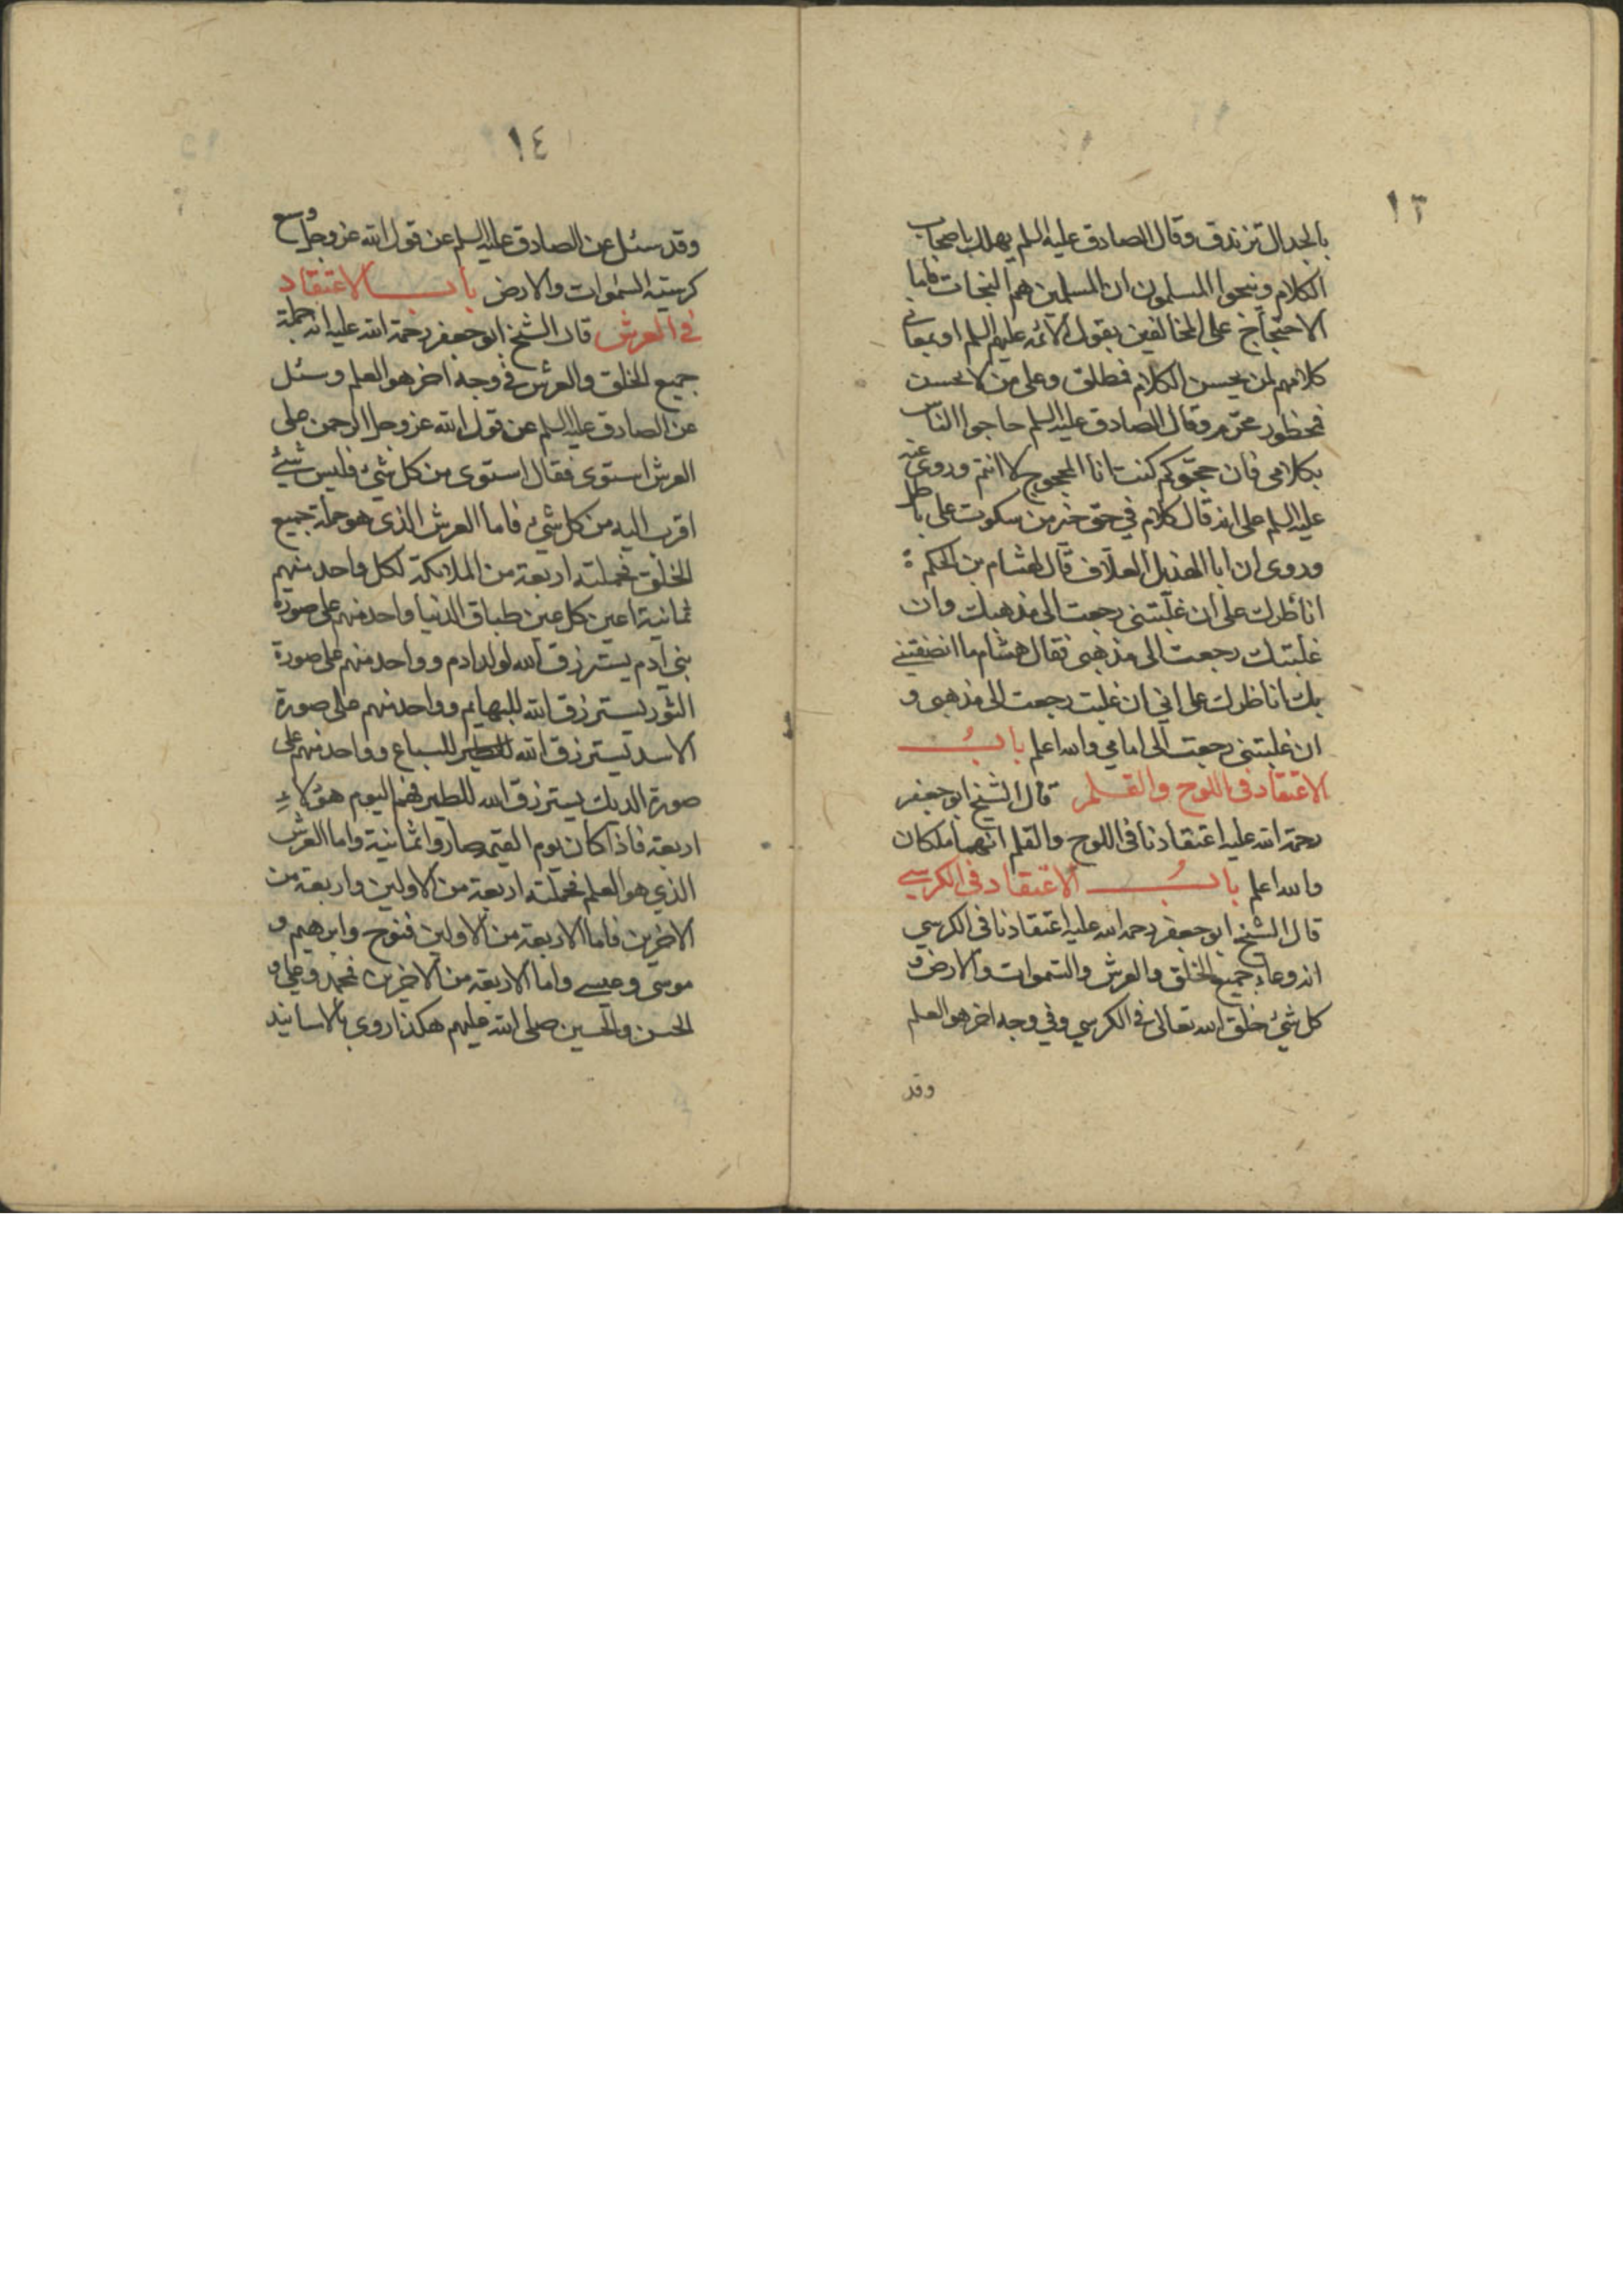 ١٣
بالجدال تزندق وقال الصادق عليه السلم يهلك اصحاب
الكلام وينجوا المسلمون ان المسلمين هم النجبات فاما
الاحتجاج على المخالفين بقول الائمه عليهم السلم او بمعانى
كلامهم لمن يحسن الكلام فطلق وعلى من لا يحسن
فمحظور محرم وقال الصادق عليه السلم حاجوا الناس
بكلامى فان حجوكم كنت انا المحجوج لا انتم وروى عنه
عليه السلم على انه قال كلام في حق خير من سكوت على باطل
وروى ان ابا الهذيل العلاف قال لهشام بن الحكم
اناظرك على ان غلبتنى رجعت الى مذهبك وان
غلبتك رجعت الى مذهبى فقال هشام ما انصفتنے
بك اناظرك على انى ان غلبت رجعت الى مذهبى و
ان غلبتنى رجعت الى امامي والله اعلم باب
الاعتقاد فى اللوح والقلم قال الشيخ ابو جعفر
رحمة الله عليه اعتقادنا فى اللوح والقلم انهما ملكان
والله اعلم باب الاعتقاد فى الكرسے
قال الشيخ ابو جعفر رحمه الله عليه اعتقادنا فى الكرسي
انه وعاء جميع الخلق والعرش والسموات والارض و
كل شئ خلق الله تعالى فى الكرسي وفي وجه اخر هو العلم
وقد
١٤
وقد سئل عن الصادق عليه السلم عن قول الله عز وجل وسع
كرسيه السموات والارض باب الاعتقاد
فى العرش قال الشيخ ابو جعفر رحمة الله عليه انه جملة
جميع الخلق والعرش فى وجه اخر هو العلم وسئل
عن الصادق عليه السلم عن قول الله عز وجل الرحمن على
العرش استوى فقال استوى من كل شئ فليس شئ
اقرب اليه من كل شئ فاما العرش الذى هو جملة جميع
الخلق فحملته اربعة من الملائكة لكل واحد منهم
ثمانية اعين كل عين طباق الدنيا واحد منهم على صورة
بنى ادم يسترزق الله لولد ادم وواحد منهم على صورة
الثور يسترزق الله للبهايم وواحد منهم على صورة
الاسد يسترزق الله للسباع وواحد منهم على
صورة الديك يسترزق الله للطير فهم اليوم هؤلاء
اربعة فاذا كان يوم القيمه صاروا ثمانية واما العرش
الذي هو العلم فحملته اربعة من الاولين واربعة من
الاخرين فاما الاربعة من الاولين فنوح وابرهيم و
موسى وعيسے واما الاربعة من الاخرين فمحمد وعلي و
الحسن والحسين صلى الله عليهم هكذا روى بالاسانيد